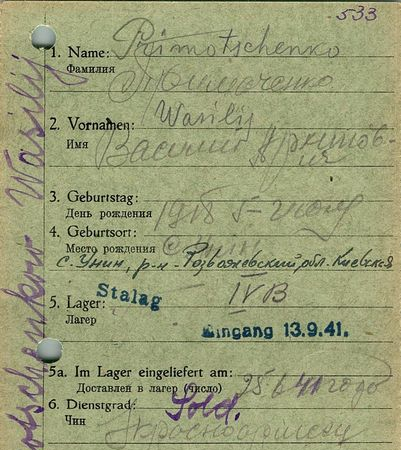 533
1. Name: Primotschenko
Фамилия
2. Vornamen: Wasilij
Имя Василий Архипович
3. Geburtstag:
День рождения 1918
4. Geburtsort:
Место рождения
с. Унин, р-н Розважевский, обл. Киевская
5. Lager: Stalag IVB
Лагер
Eingang 13.9.41.
5a. Im Lager eingeliefert am:
Доставлен в лагер (число)
6. Dienstgrad: Sold.
Чин
Wasilij